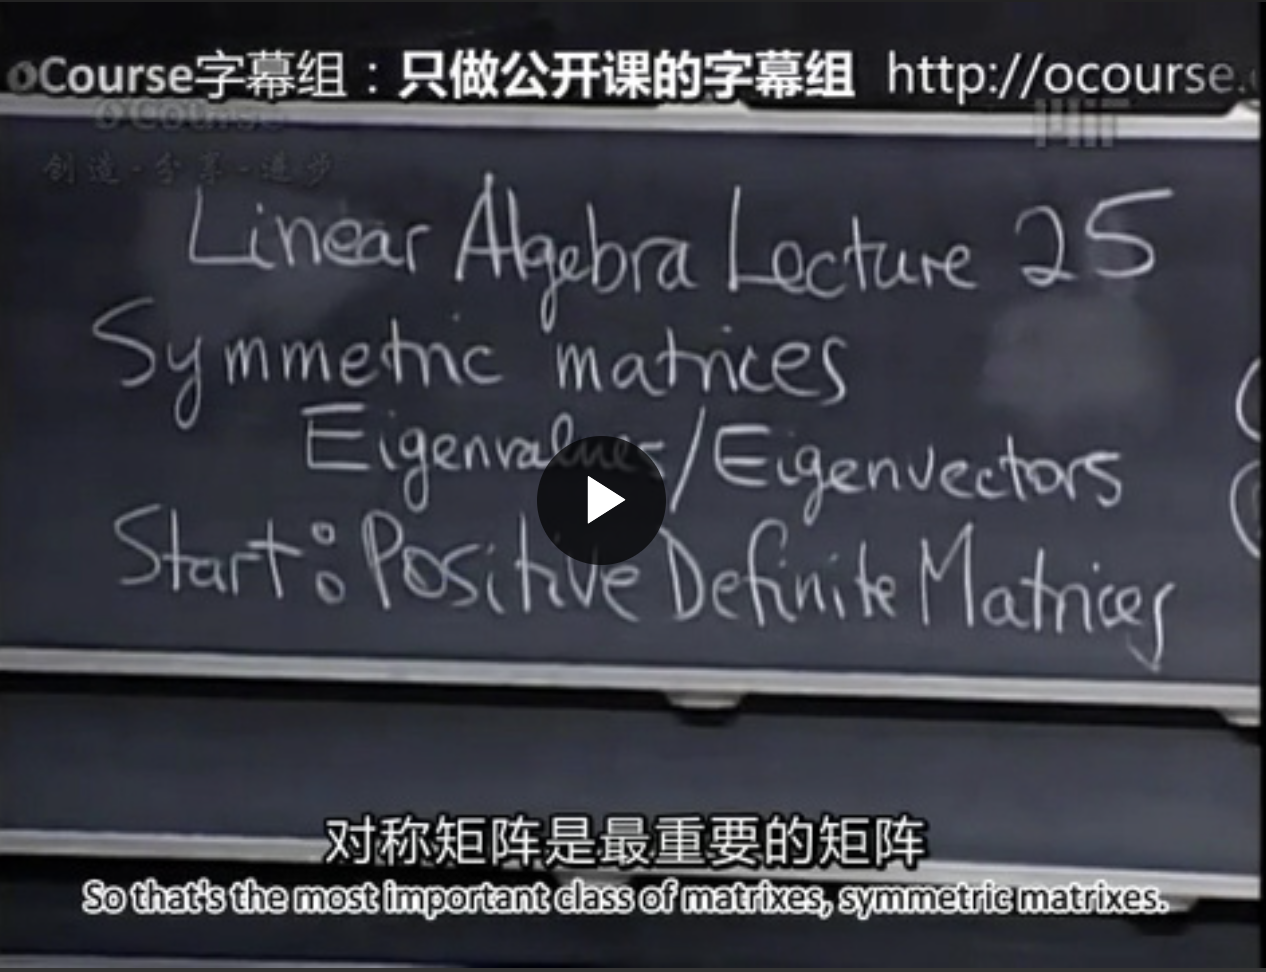 oCourse字幕组：只做公开课的字幕组 http://ocourse.
oCourse
MIT
创造-分享-进步
Linear Algebra Lecture 25
Symmetric matrices
Eigenvalues/Eigenvectors
Start: Positive Definite Matrices
对称矩阵是最重要的矩阵
So that's the most important class of matrixes, symmetric matrixes.